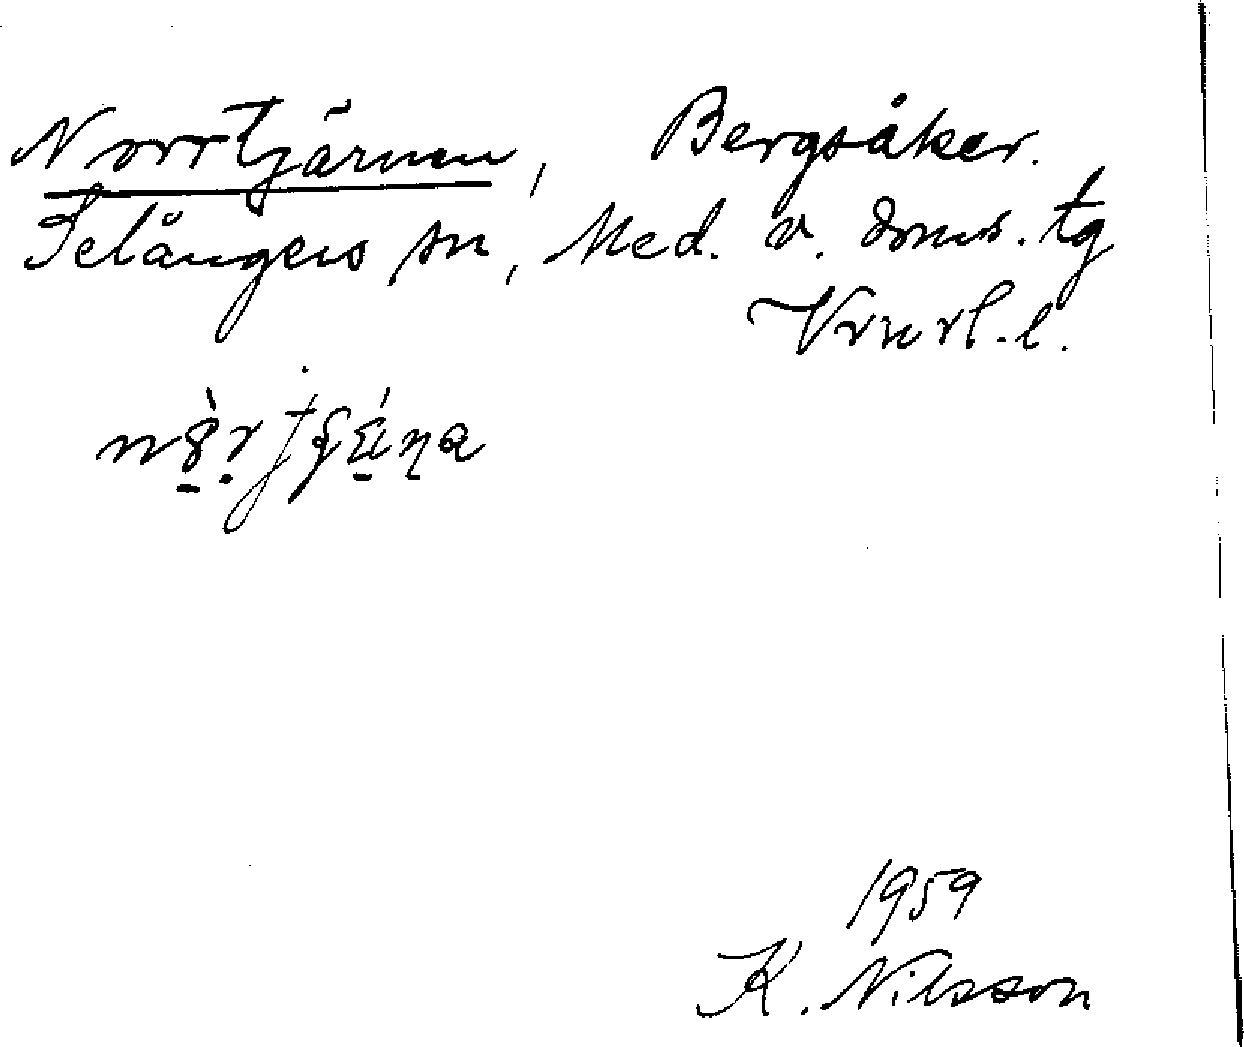 Norrtjärnen, Bergsåker.
Selångers sn, Med. v. doms. tg
Vrnrl. l.
1959
K. Nilsson